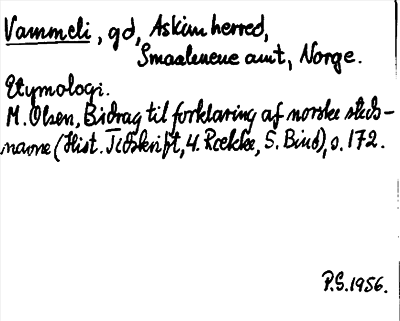 Vammeli, gd, Askim herred,
Smaalenene amt, Norge.
Etymologi.
M. Olsen, Bidrag til forklaring af norske steds-
navne (Hist. Tidskrift, 4. Række, 5. Bind), s. 172.
P.S. 1956.